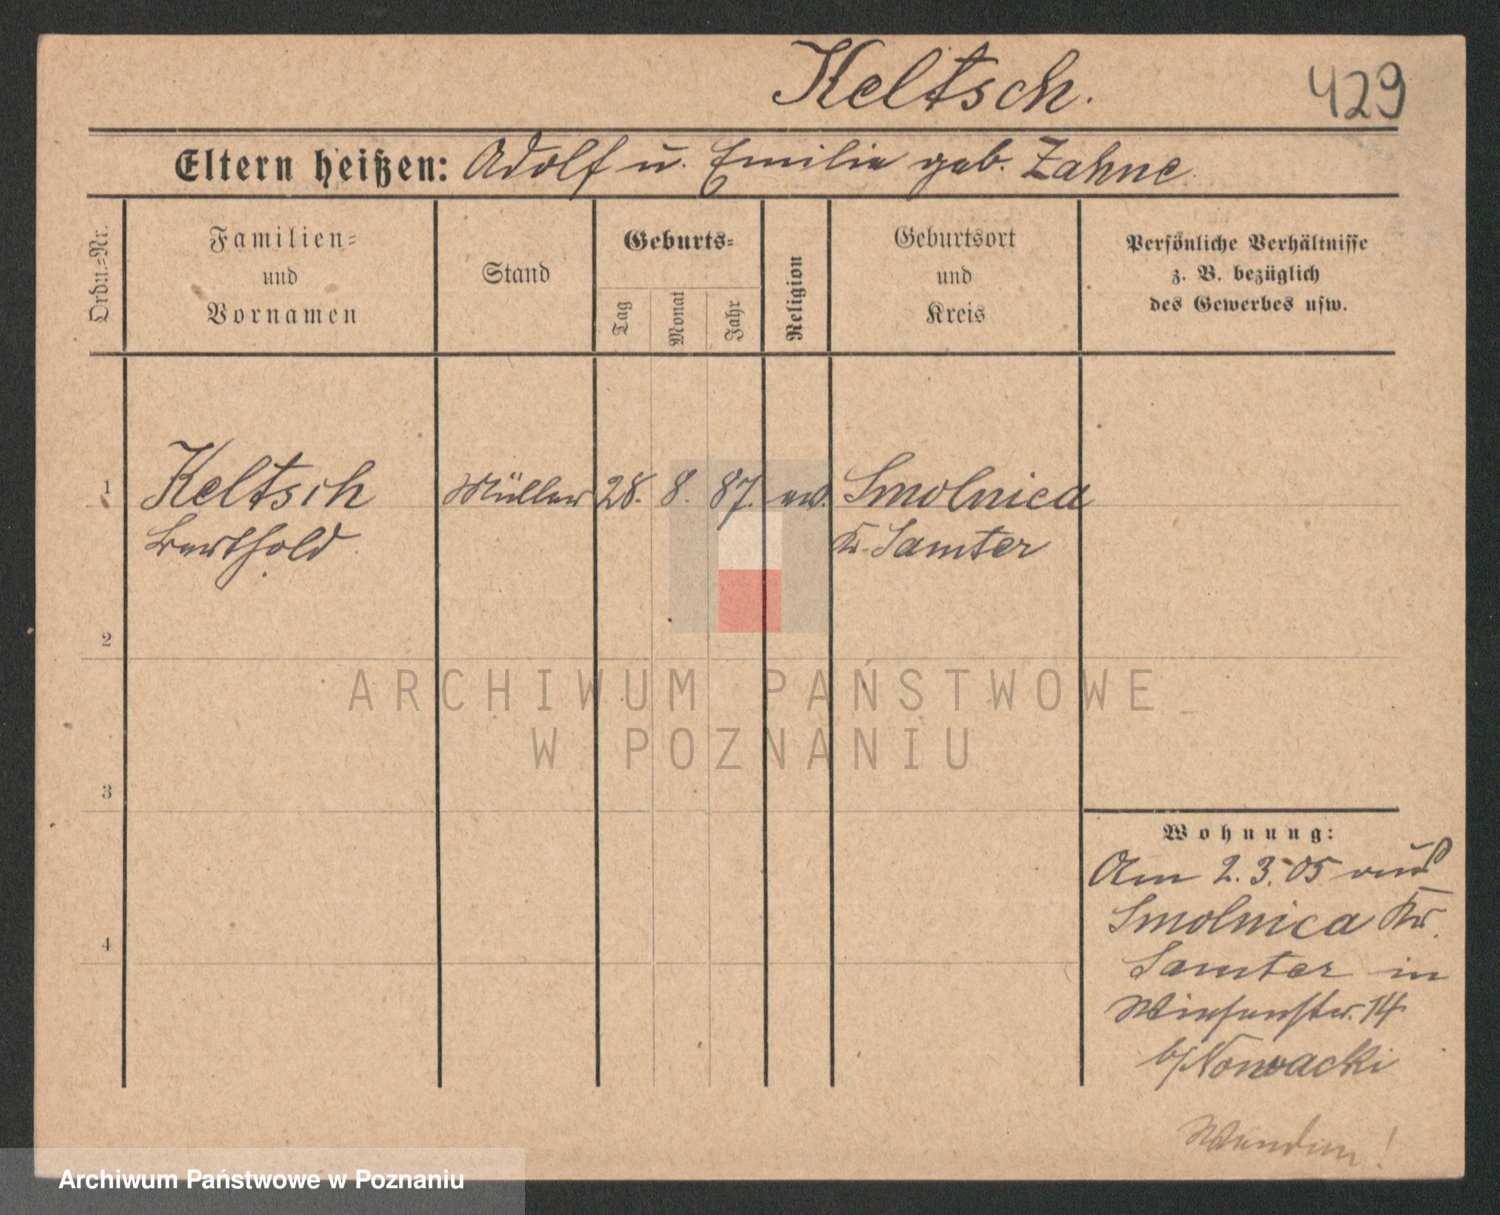 Keltsch.
429
Eltern heißen: Adolf u. Emilie geb. Zahne
Ordn.=Nr.
Familien= und Vornamen
Stand
Geburts=
Tag
Monat
Jahr
Religion
Geburtsort und Kreis
Persönliche Verhältnisse
z. B. bezüglich
des Gewerbes usw.
1 Keltsch Müller 28. 8. 87. ev. Smolnica
Berthold Kr. Samter
2
3
4
Wohnung:
Am 2.3.05 aus
Smolnica Kr.
Samter in
Wiesenstr. 14
b/Nowacki
Wenden!
ARCHIWUM PAŃSTWOWE
W POZNANIU
Archiwum Państwowe w Poznaniu